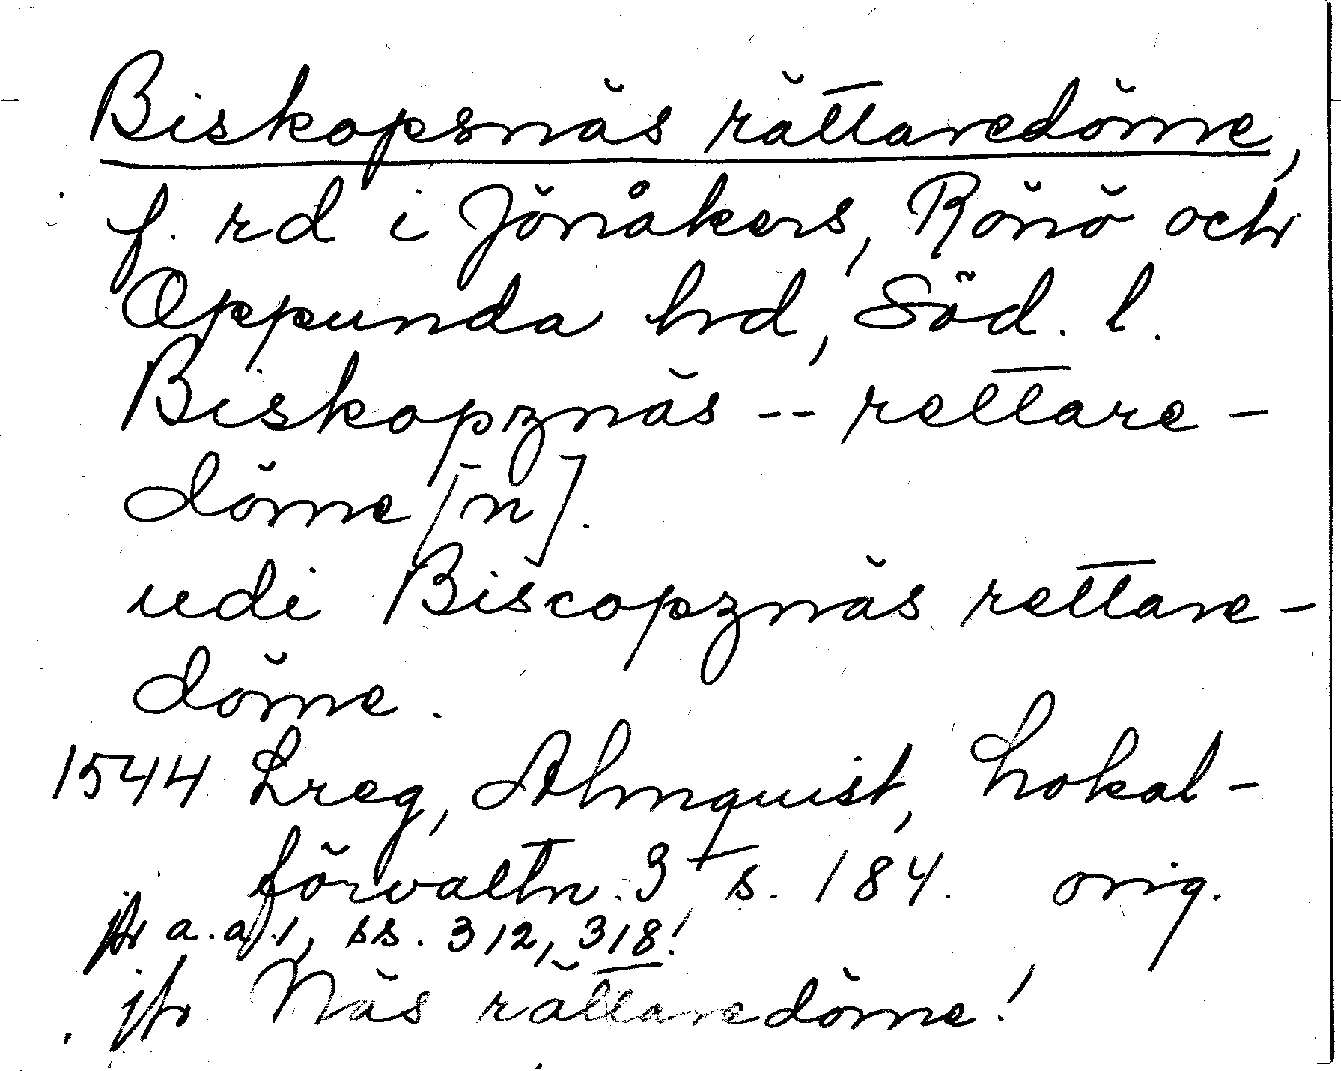 Biskopsnäs rättaredöme,
f. rd i Jönåkers, Rönö och
Oppunda hrd, Söd. l.
Biskopznäs -- rettare-
döme [n].
udi Biscopznäs rettare-
döme.
1544 Lreg, Almquist, Lokal-
förvaltn. 3 s. 184. orig.
jfr a.a. 1, ss. 312, 318!
jfr Näs rättaredöme!